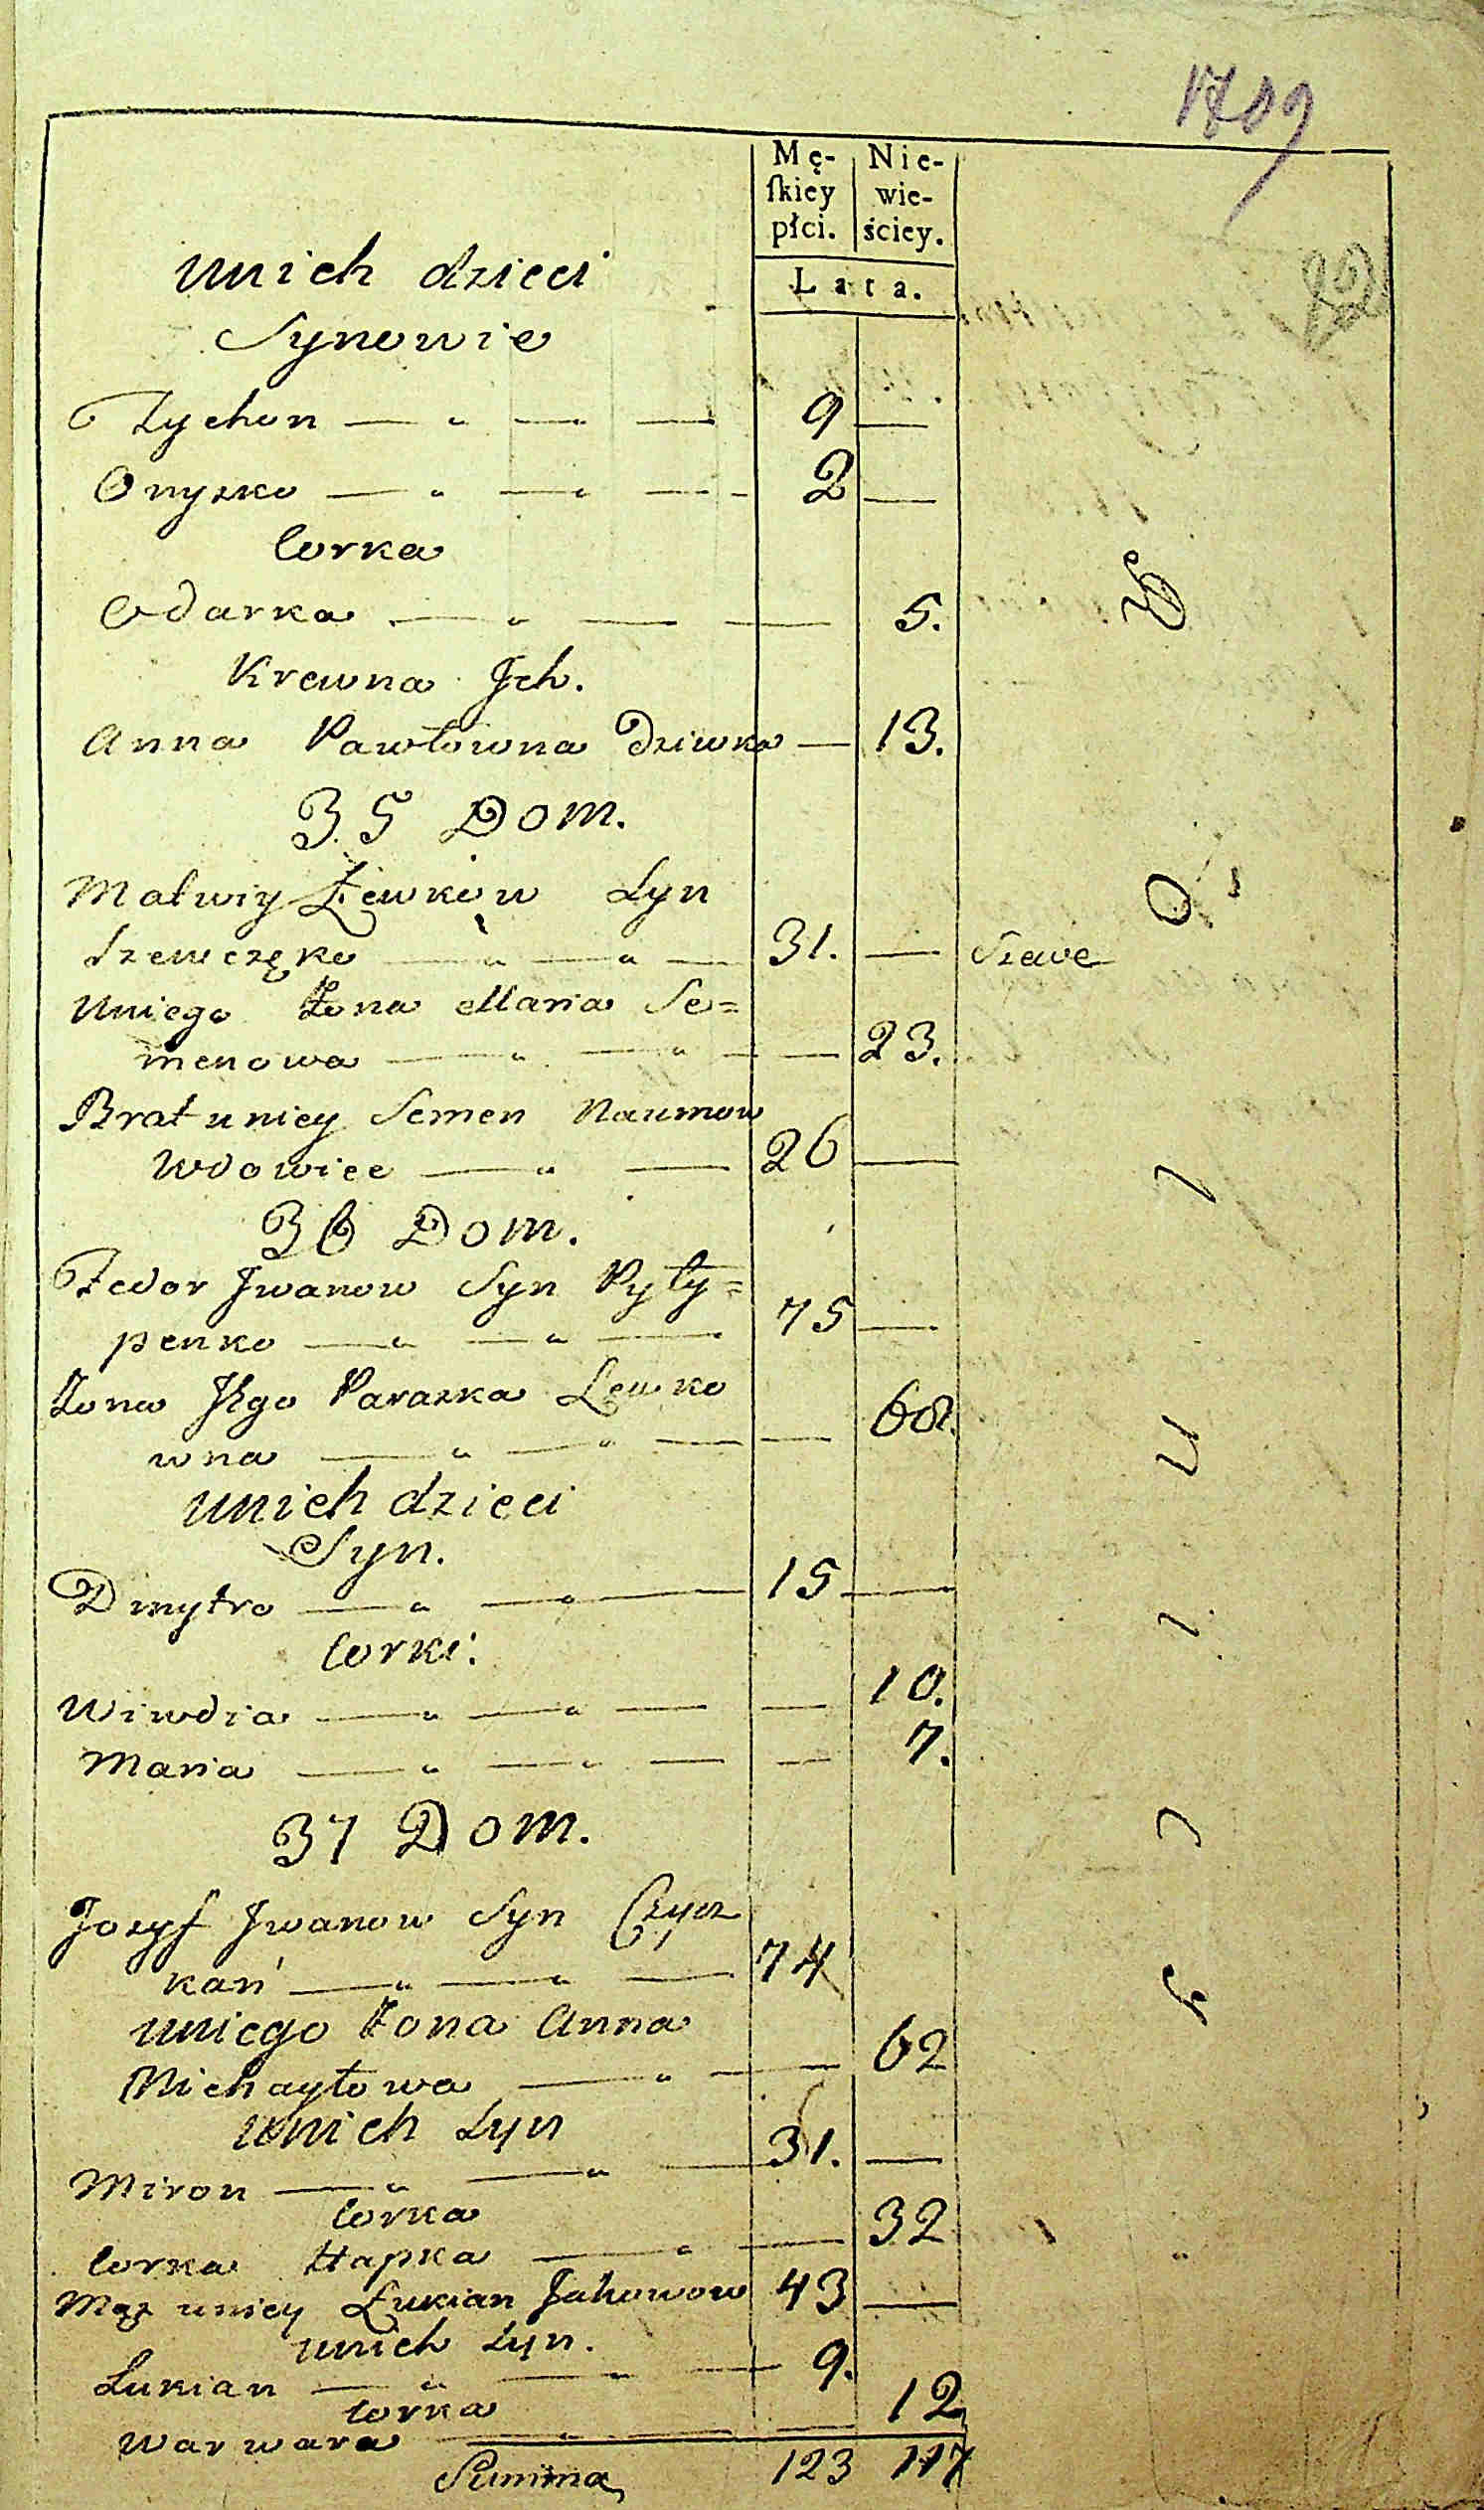 1709
Mę- Nie-
ſkiey wie-
płci. ściey.
Lata.
unich dzieci
Synowie
Tychon — " — — 9 —
Onyszko — " — " — - 2 —
Corka
Odarka — " — — 5.
Krewna Jch.
Anna Pawłowna Dziwka — 13.
35 Dom.
Matwiy Łewkow Syn
Szewczęko — " — " — 31. — Szewc
Uniego Żona Maria Se=
menowa — " — " — — 23.
Brat uniey Semen Naumow
Wdowiec — " — 26 —
36 Dom.
Fedor Jwanow Syn Pyły=
penko — " — " — 75 —
Żona Jego Paraska Lewko
wna — " — " — — 68.
unich dzieci
Syn.
Dmytro — " — " — 15 —
Corki:
Wiwdia — " — " — — 10.
Maria — " — " — — 7.
37 Dom.
Jozyf Jwanow Syn
kań — " — " — 74
uniego Żona Anna
Michayłowa — " — — 62
unich Syn
Miron — " — " — 31. —
Corka
Corka Hapka — " — 32
Mąż uniey Łukian Jakowow 43 —
unich Syn.
Lukian — " — " — 9.
Corka
Warwara — " — — 12
Summa 123 117